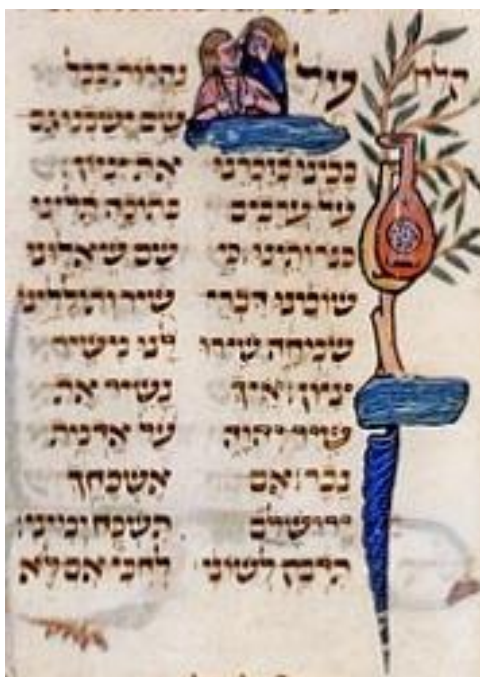 קלז על נהרות בבל
שם ישבנו גם
בכינו בזכרנו את ציון׃
על ערבים בתוכה תלינו
כנרותינו׃ כי שם שאלונו
שובינו דברי שיר ותוללינו
שמחה שירו לנו משיר
ציון׃ איך נשיר את
שיר יהוה על אדמת
נכר׃ אם אשכחך
ירושלם תשכח ימיני׃
תדבק לשוני לחכי אם לא